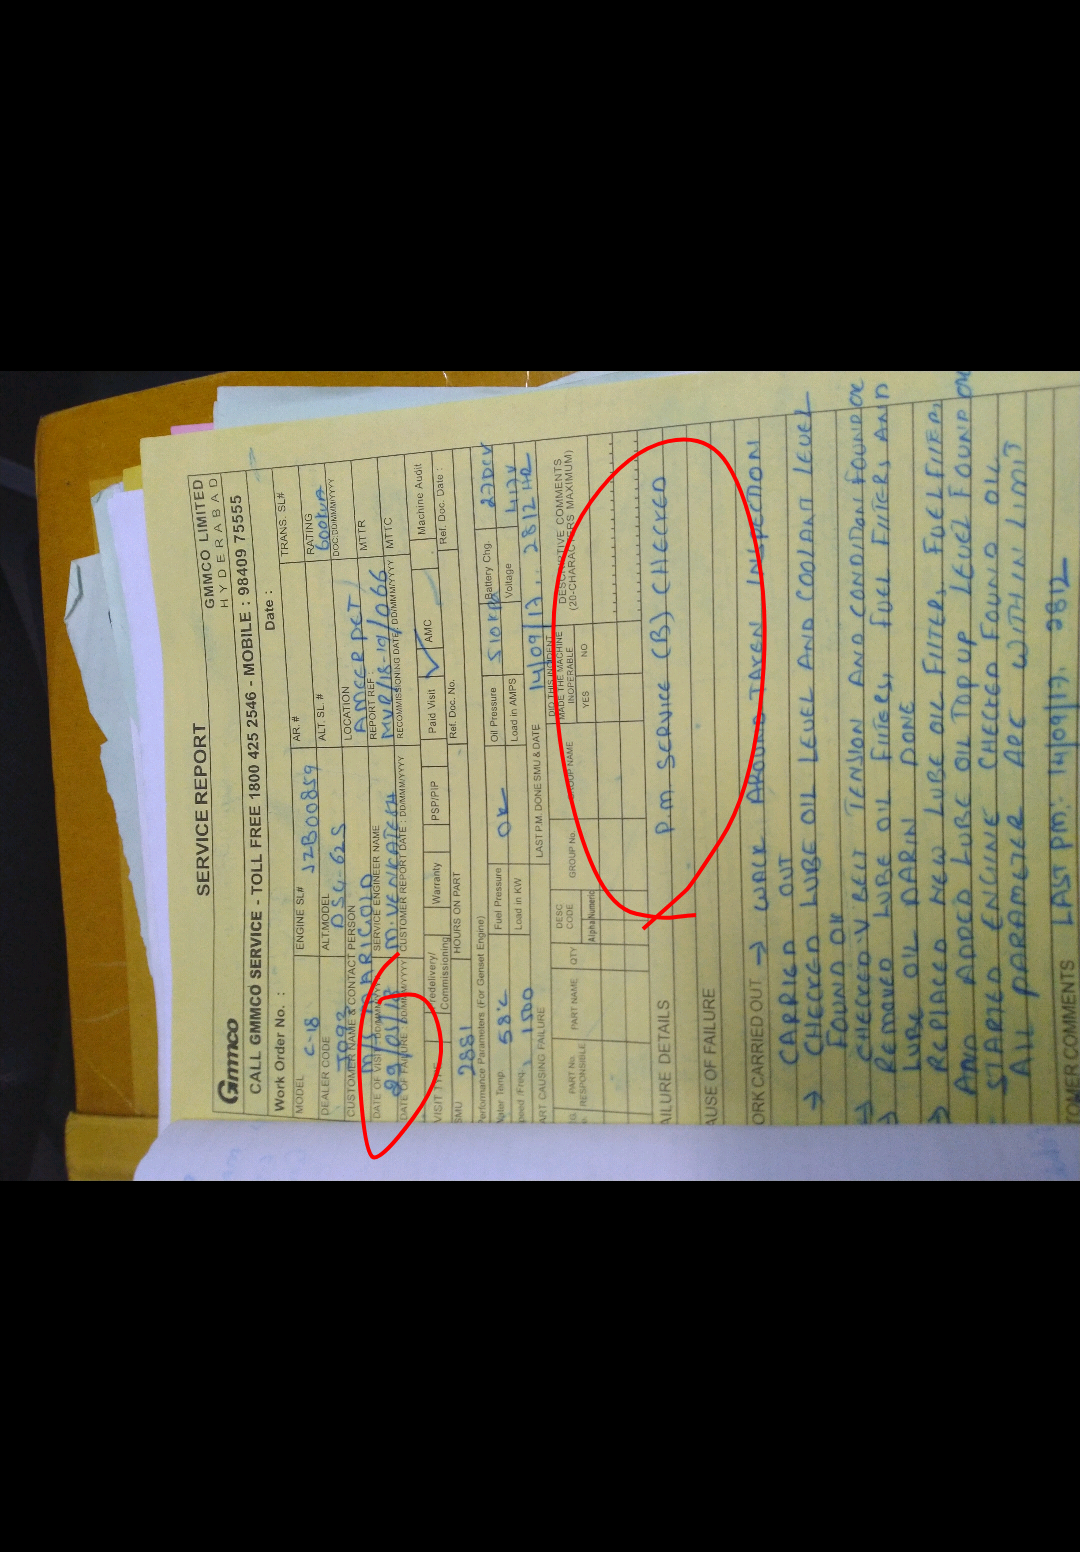 SERVICE REPORT
GMMCO LIMITED
HYDERABAD
Gmmco
CALL GMMCO SERVICE - TOLL FREE 1800 425 2546 - MOBILE : 98409 75555
Work Order No. :
Date :
MODEL
C-18
ENGINE SL#
JZB00859
AR. #
TRANS. SL#
DEALER CODE
J093
ALT.MODEL
DSG-62S
ALT. SL. #
RATING
600KVA
CUSTOMER NAME & CONTACT PERSON
LOCATION
AMEERPET
DOC:DD/MMM/YYYY
DATE OF VISIT :DD/MMM/YYYY
SERVICE ENGINEER NAME
M.VENKATESH
REPORT REF :
MVR/18-19/066
MTTR
DATE OF FAILURE :DD/MMM/YYYY
CUSTOMER REPORT DATE : DD/MMM/YYYY
RECOMMISSIONING DATE : DD/MMM/YYYY
MTTC
VISIT TYPE
Predelivery/
Commissioning
Warranty
PSP/PIP
Paid Visit
AMC
Machine Audit
SMU
2881
HOURS ON PART
Ref. Doc. No.
Ref. Doc. Date :
Performance Parameters (For Genset Engine)
Water Temp.
58°C
Fuel Pressure
OK
Oil Pressure
510KPA
Battery Chg.
27DCV
Speed /Freq.
1500
Load in KW
Load in AMPS
Voltage
417V
PART CAUSING FAILURE
LAST P.M. DONE SMU & DATE
14/09/17, 2812 HR
PART No.
RESPONSIBLE
PART NAME
QTY
DESC
CODE
Alpha Numeric
GROUP No.
GROUP NAME
DID THIS INCIDENT
MADE THE MACHINE
INOPERABLE
YES
NO
DESCRIPTIVE COMMENTS
(20-CHARACTERS MAXIMUM)
FAILURE DETAILS
P.M SERVICE (B) CHECKED
CAUSE OF FAILURE
WORK CARRIED OUT → WALK AROUND TAKEN INSPECTION
CARIED OUT
→ CHECKED LUBE OIL LEVEL AND COOLANT LEVEL
FOUND OK
→ CHECKED V BELT TENSION AND CONDITION FOUND OK
→ REMOVED LUBE OIL FILTERS, FUEL FILTERS AND
LUBE OIL DARIN DONE
→ REPLACED NEW LUBE OIL FILTER, FUEL FILTER,
AND ADDED LUBE OIL TOP UP LEVEL FOUND OK
→ STARTED ENGINE CHECKED FOUND OK
ALL PARAMETER ARE WITH IN LIMIT
LAST PM: 14/09/17, 2812
CUSTOMER COMMENTS